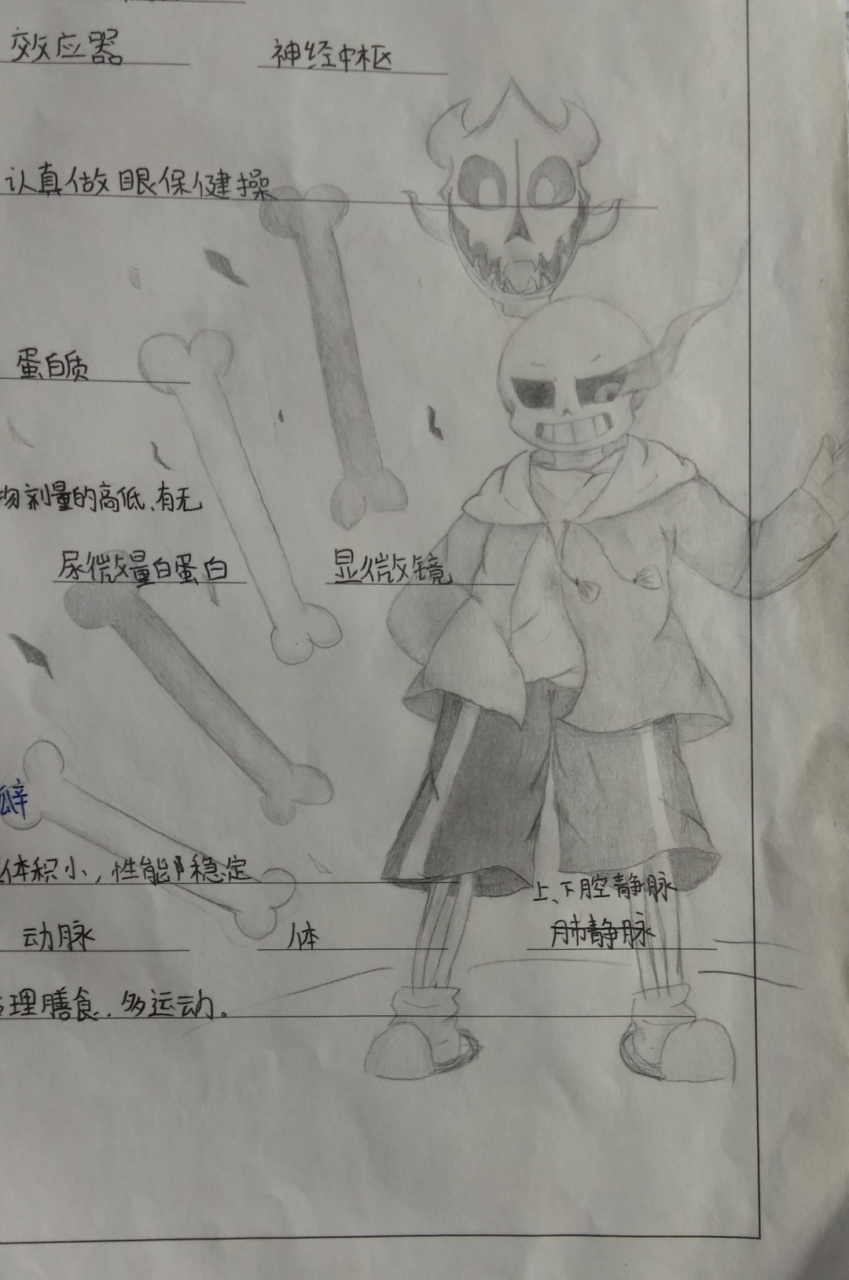 效应器 神经中枢
认真做眼保健操
蛋白质
物剂量的高低、有无
尿微量白蛋白 显微镜
体积小，性能稳定
上、下腔静脉
动脉 体 肺静脉
理膳食，多运动。